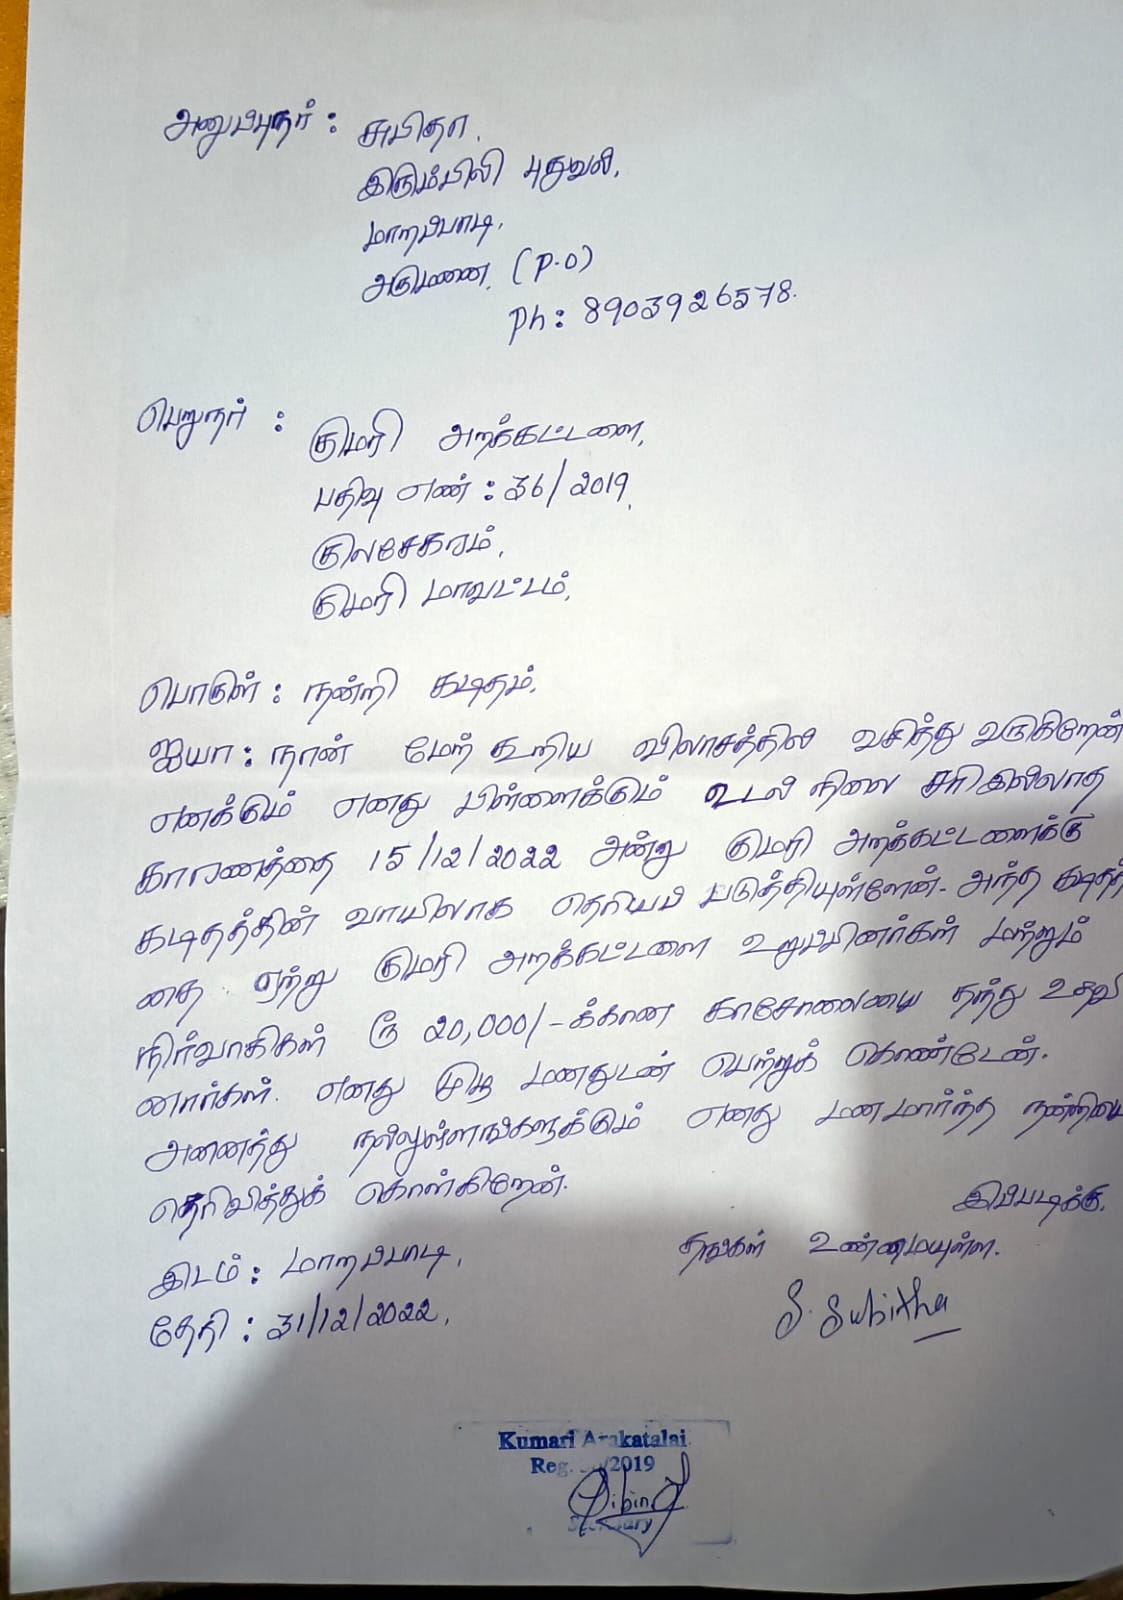 அனுப்புநர் : சுபிதா.
இரும்பிலி புதுவல்,
மாறப்பாடி,
அருமணை. (P.O)
Ph: 8903926578.
பெறுநர் :
குமரி அறக்கட்டளை,
பதிவு எண் : 36/2019,
குலசேகரம்,
குமரி மாவட்டம்,
பொருள் : நன்றி கடிதம்.
ஐயா : நான் மேற் கூறிய விலாசத்தில் வசித்து வருகிறேன்
எனக்கும் எனது பிள்ளைக்கும் உடல் நிலை சரிஇல்லாத
காரணத்தை 15/12/2022 அன்று குமரி அறக்கட்டளைக்கு
கடிதத்தின் வாயிலாக தெரியப் படுத்தியுள்ளேன். அந்த கடிதத்
தை ஏற்று குமரி அறக்கட்டளை உறுப்பினர்கள் மற்றும்
நிர்வாகிகள் ரூ 20,000/-க்கான காசோலையை தந்து உதவி
னார்கள். எனது முழு மனதுடன் பெற்றுக் கொண்டேன்.
அனைத்து நல்லுள்ளங்களுக்கும் எனது மனமார்ந்த நன்றியை
தெரிவித்துக் கொள்கிறேன்.
இப்படிக்கு,
தங்கள் உண்மையுள்ள.
இடம் : மாறப்பாடி,
தேதி : 31/12/2022,
S. Subitha
Kumari Arakatalai
Reg. 36/2019
Secretary